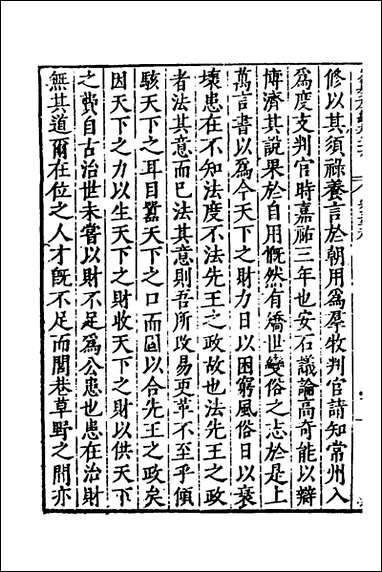 修以其須祿養言於朝用爲羣牧判官請知常州入
爲度支判官時嘉祐三年也安石議論高奇能以辯
博濟其說果於自用慨然有矯世變俗之志於是上
萬言書以爲今天下之財力日以困窮風俗日以衰
壞患在不知法度不法先王之政故也法先王之政
者法其意而已法其意則吾所改易更革不至乎傾
駭天下之耳目囂天下之口而固以合先王之政矣
因天下之力以生天下之財收天下之財以供天下
之費自古治世未嘗以財不足爲公患也患在治財
無其道爾在位之人才旣不足而閭巷草野之間亦